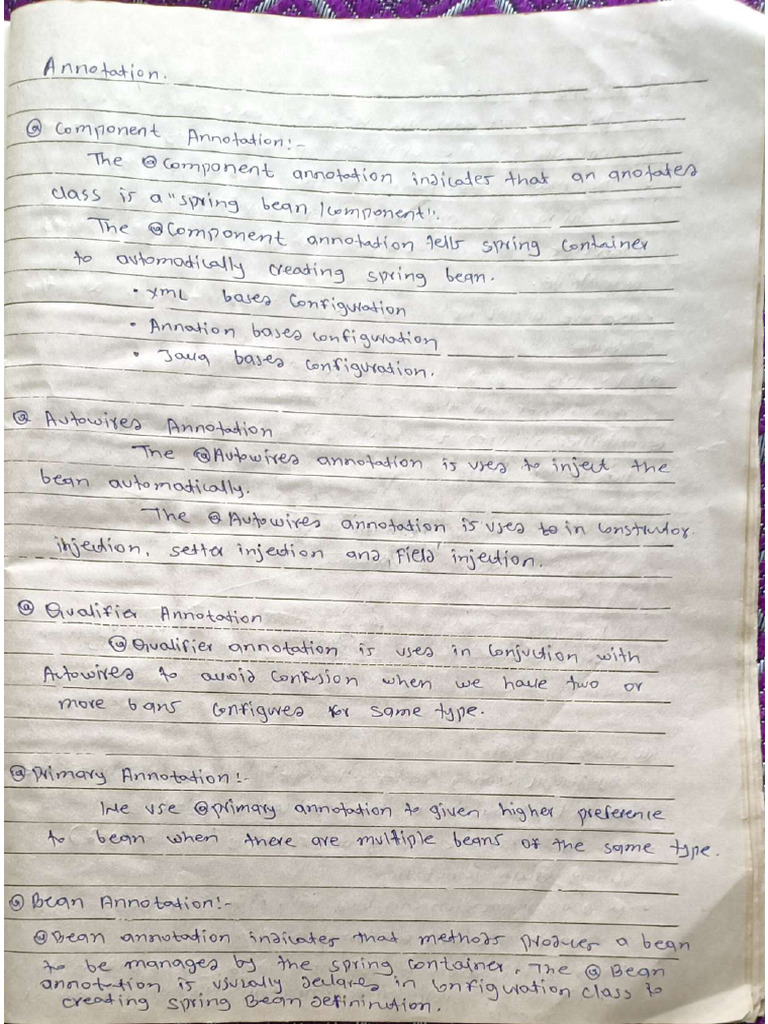 Annotation.
@ Component Annotation:-
The @Component annotation indicates that an anotated
class is a "spring bean /component".
The @Component annotation tells spring container
to automatically creating spring bean.
• XML based Configuration
• Annation based configuration
• Java based configuration.
@ Autowired Annotation
The @Autowired annotation is used to inject the
bean automatically.
The @Autowired annotation is used to in constructor
injection, setter injection and, field injection.
@ Qualifier Annotation
@Qualifier annotation is used in conjuction with
Autowired to avoid confusion when we have two or
more bans configured for same type.
@Primary Annotation:-
We use @primary annotation to given higher preference
to bean when there are multiple beans of the same type.
@Bean Annotation:-
@Bean annotation indicates that methods produces a bean
to be managed by the spring container. The @Bean
annotation is usually declared in configuration class to
creating spring Bean defininution.